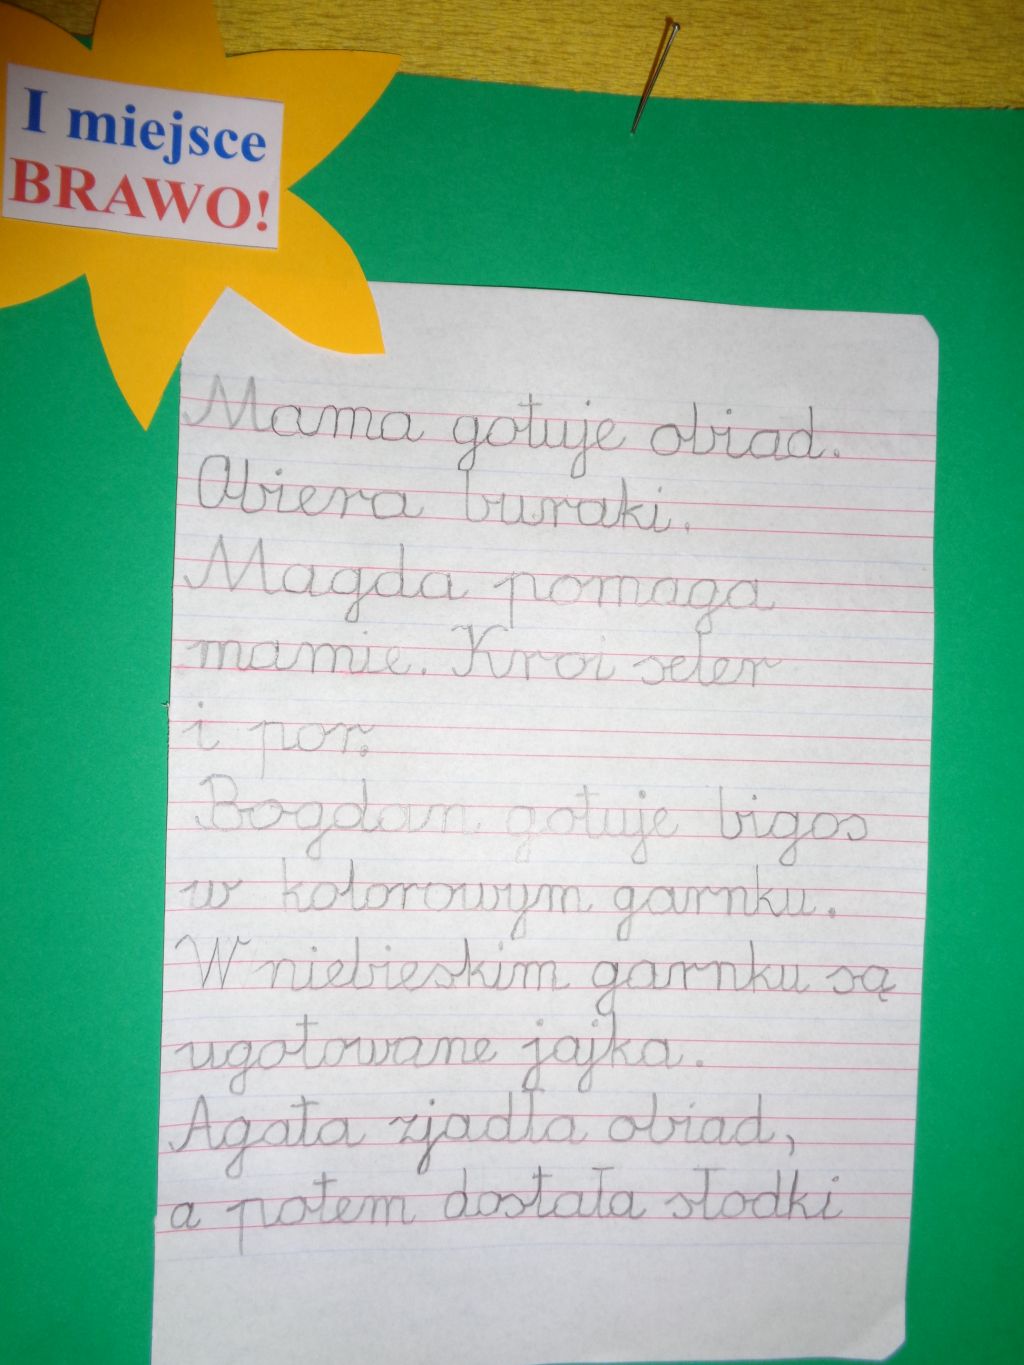 I miejsce
BRAWO!
Mama gotuje obiad.
Obiera buraki.
Magda pomaga
mamie. Kroi seler
i por.
Bogdan gotuje bigos
w kolorowym garnku.
W niebieskim garnku są
ugotowane jajka.
Agata zjadła obiad,
a potem dostała słodki